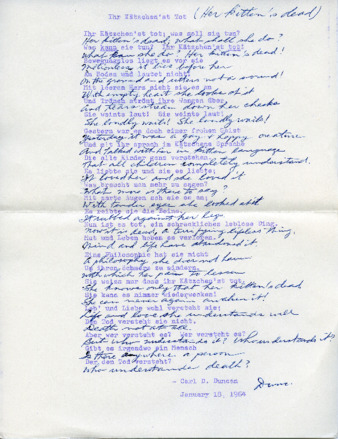 Ihr Kätzchen'st Tot (Her kitten's dead)
Ihr Kätzchen'st tot; was soll sie tun?
Her kitten's dead; what shall she do?
Was kann sie tun? Ihr Kätzchen'st tot!
What can she do? Her kitten's dead!
Bewegungslos liegt es vor sie
Motionless it lies before her
Am Boden und lautet nicht!
On the ground and utters not a sound!
Mit leerem Herz sieht sie es an
With empty heart she looks at it
Und Tränen strömt ihre Wangen über.
And tears stream down her cheeks
Sie weint laut! Sie weint laut!
She loudly wails! She loudly wails!
Gestern war es doch einer frohen Geist
Yesterday it was a gay, happy creature
Und mit ihr sprach in Kätzchen Sprache
And talked with her in kitten language
Die alle Kinder ganz verstehen.
That all children completely understand.
Es liebte sie und sie es liebte;
It loved her and she loved it
Was braucht man mehr zu sagen?
What more is there to say?
Mit zarte Augen sah sie es an;
With tender eyes she looked at it
Es reibte sie die Beine.
It rubbed against her legs
Nun ist es tot, ein schreckliches lebloses Ding.
Now it is dead, a terrifying lifeless thing.
Hat und Leben haben es verlassen.
Mind and life have abandoned it.
Eine Philosophie hat sie nicht
A philosophy she does not have
Um ihren Schmerz zu mindern.
With which her pain to lessen
Sie weiss nur dass ihr Kätzchen'st tot;
She knows only that her kitten's dead
Sie kann es nimmer wiederwecken!
She can never again awaken it!
Leb' und Liebe wohl versteht sie;
Life and love she understands well
Den Tod versteht sie nicht.
Death not at all.
Aber wer versteht es? Wer versteht es?
But who understands it? Who understands it?
Gibt es irgendwo ein Mensch
Is there anywhere a person
Der den Tod versteht?
Who understands death?
- Carl D. Duncan
Dunc.
January 18, 1964